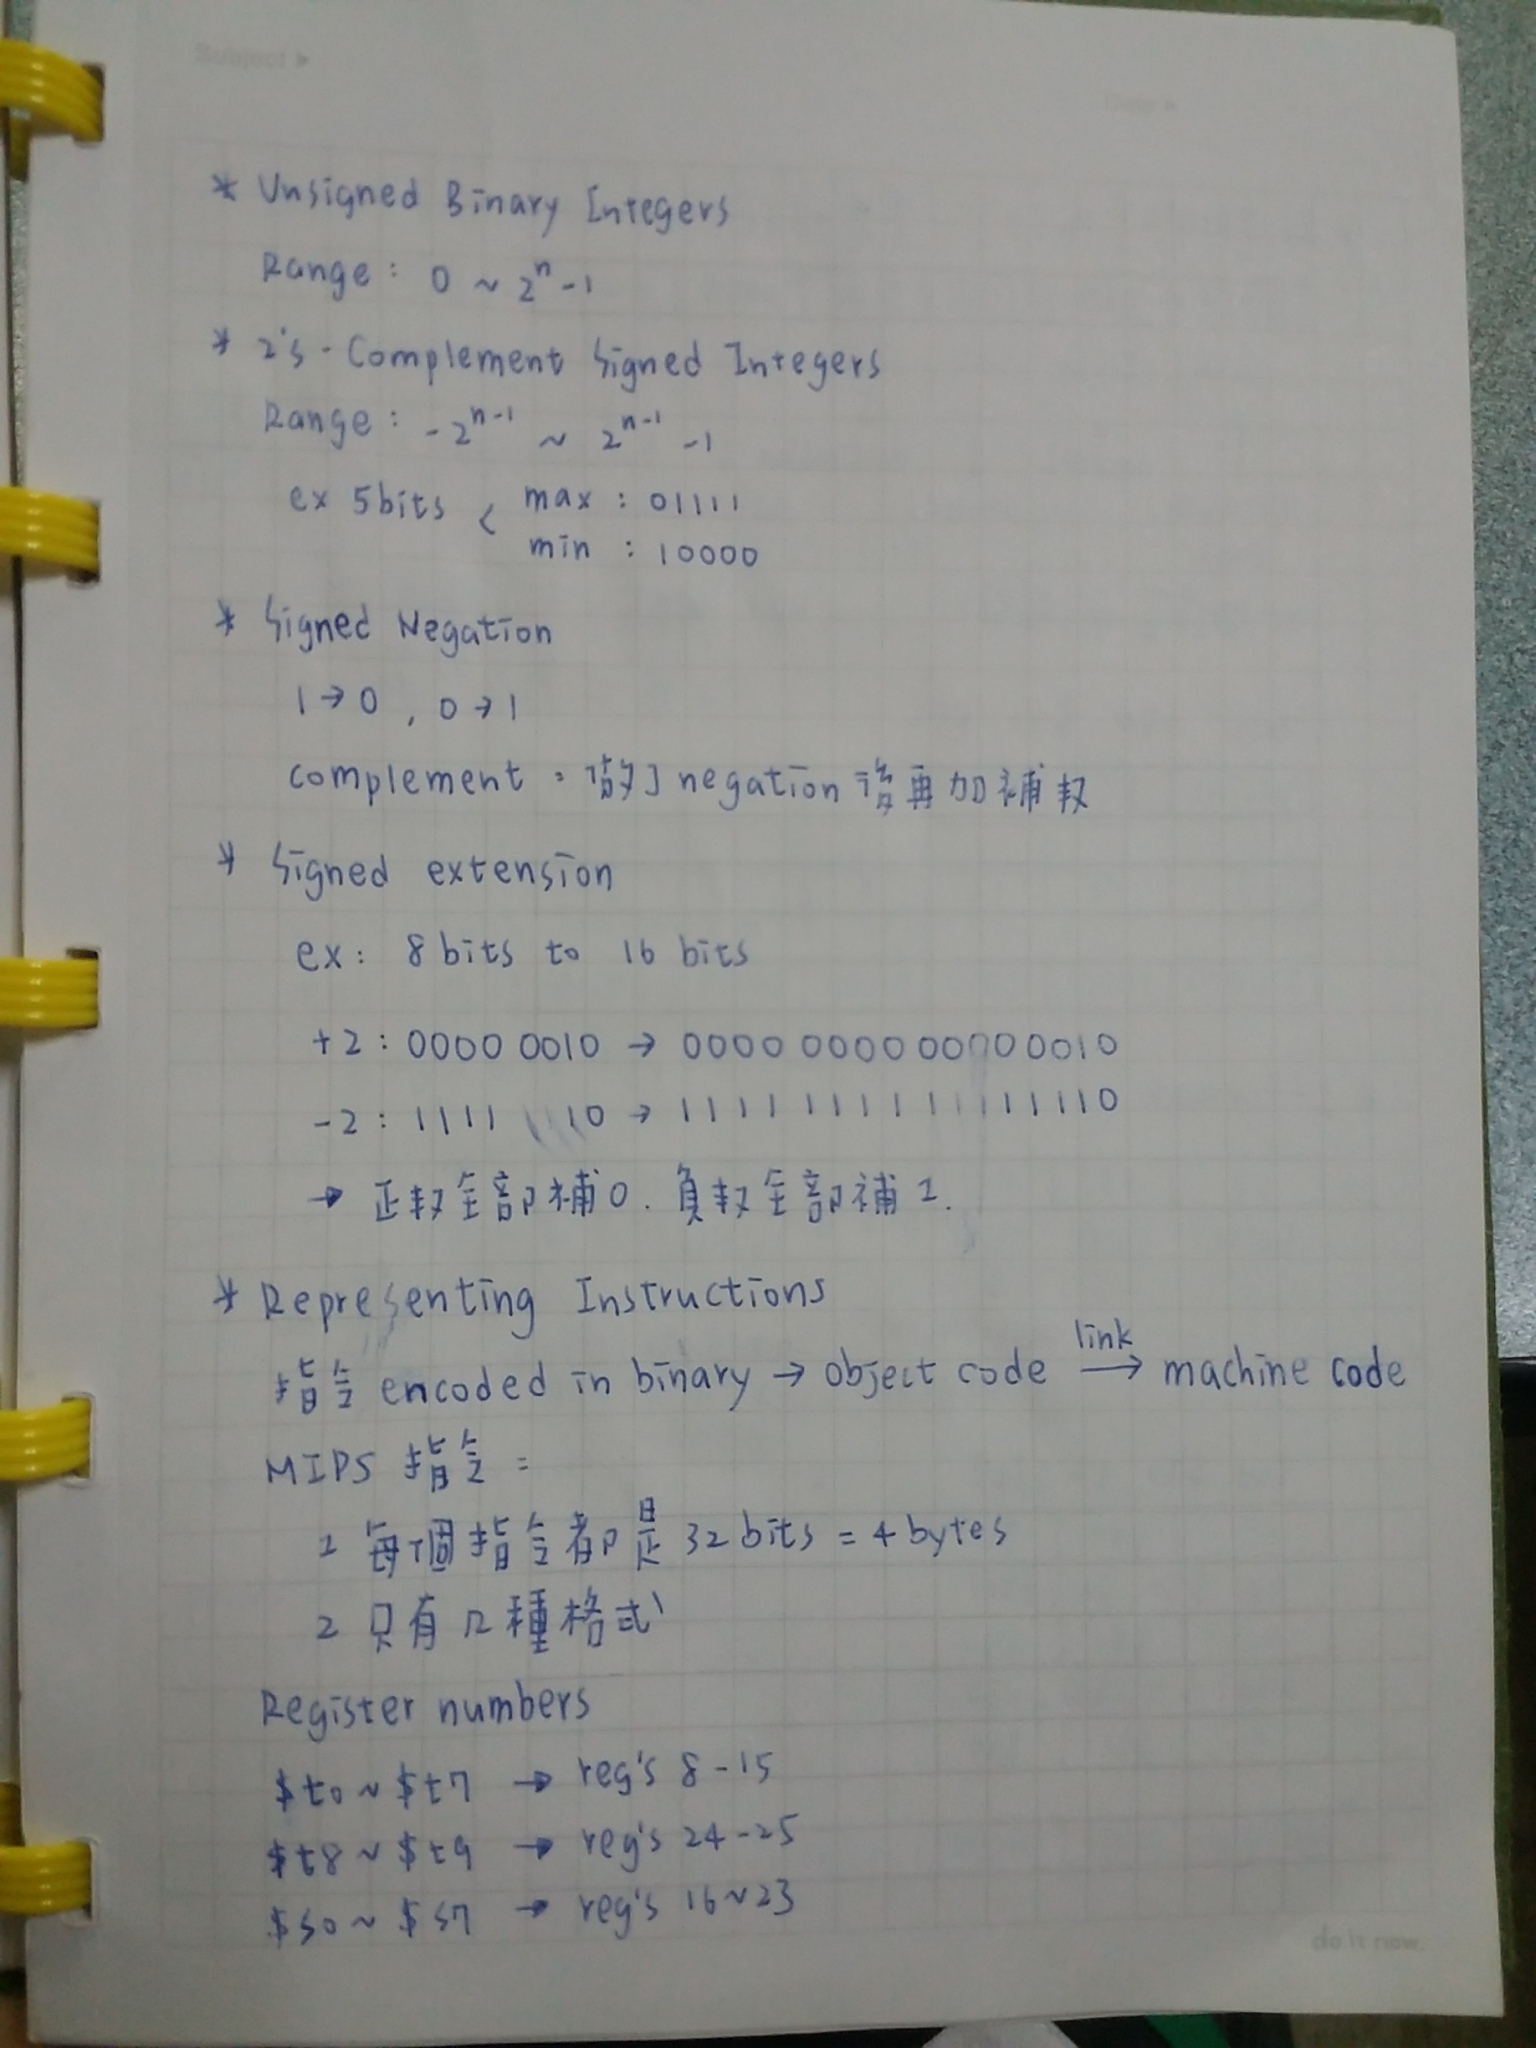 Subject ▸
Date ▸
* Unsigned Binary Integers
Range : 0 ~ 2ⁿ-1
* 2's-Complement Signed Integers
Range : -2ⁿ⁻¹ ~ 2ⁿ⁻¹ -1
ex 5bits < max : 01111
min : 10000
* Signed Negation
1→0 , 0→1
complement : 做了 negation 後再加補數
* Signed extension
ex : 8 bits to 16 bits
+2 : 0000 0010 → 0000 0000 0000 0010
-2 : 1111 1110 → 1111 1111 1111 1110
→ 正數全部補0. 負數全部補1.
* Representing Instructions
指令 encoded in binary → object code link→ machine code
MIPS 指令 :
1 每個指令都是 32 bits = 4 bytes
2 只有几種格式
Register numbers
$t0 ~ $t7 → reg's 8-15
$t8 ~ $t9 → reg's 24-25
$s0 ~ $s7 → reg's 16~23
do it now.